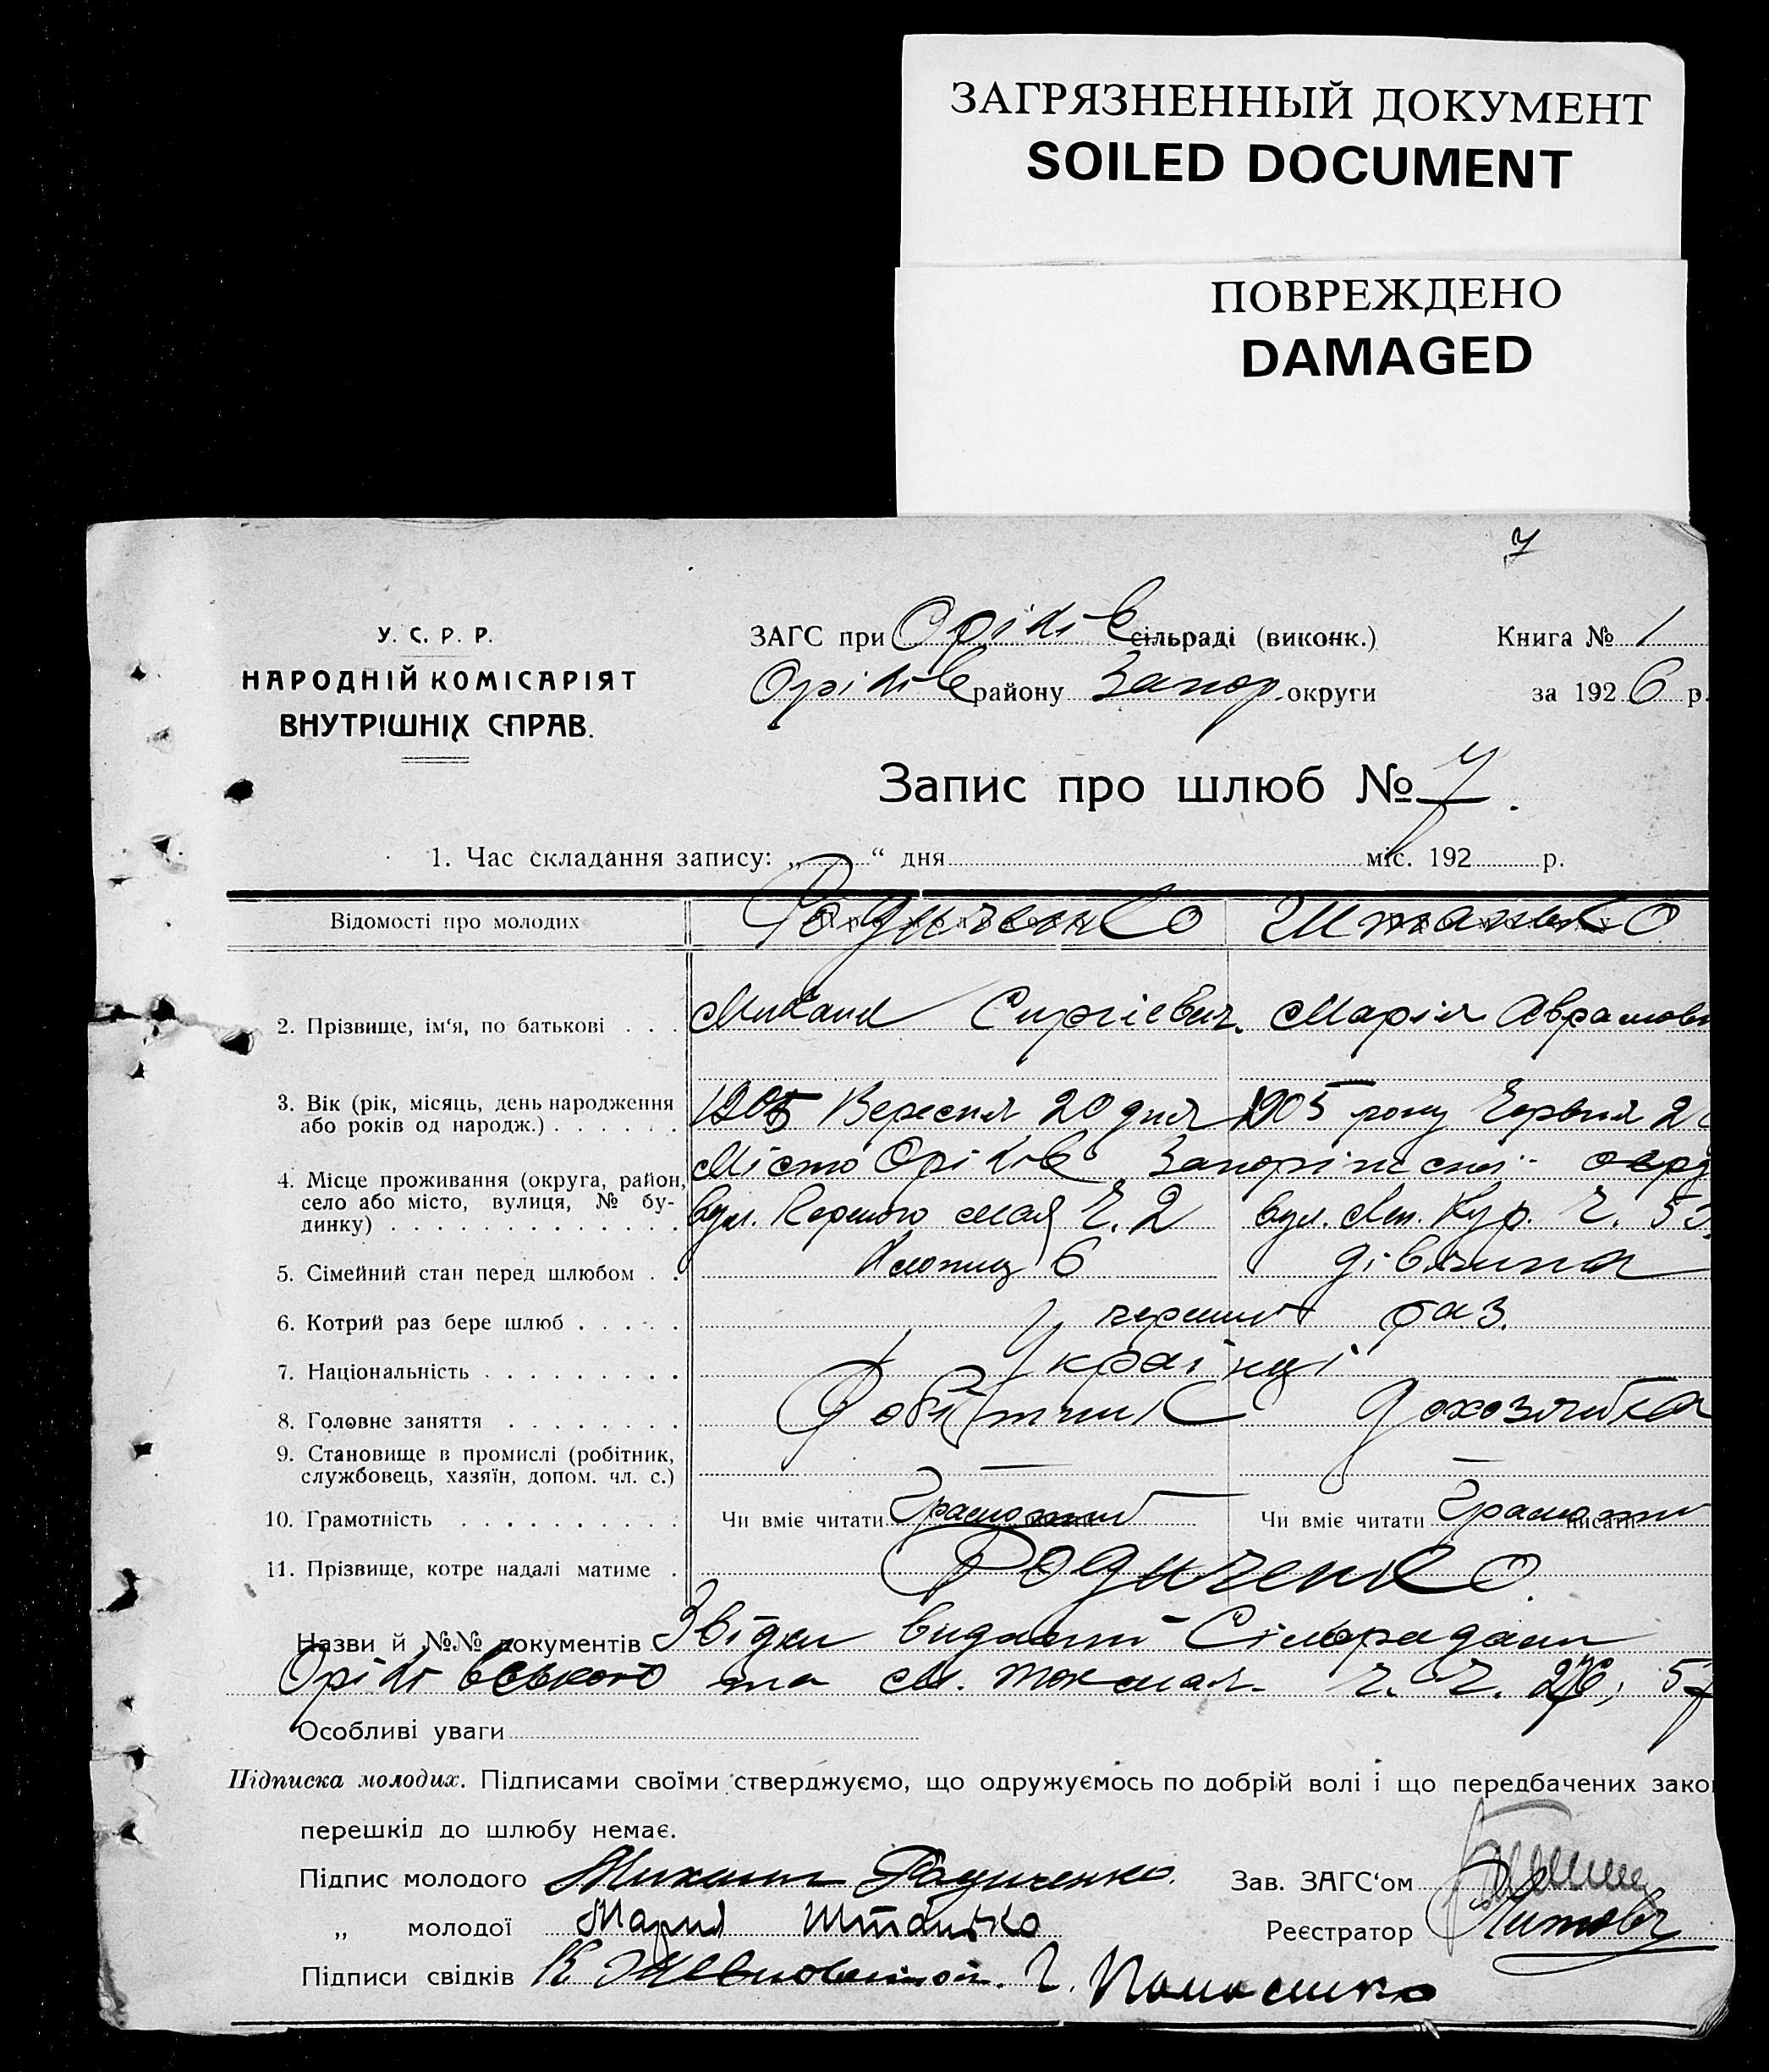 ЗАГРЯЗНЕННЫЙ ДОКУМЕНТ
SOILED DOCUMENT
ПОВРЕЖДЕНО
DAMAGED
7
У. С. Р. Р.
НАРОДНІЙ КОМІСАРІЯТ
ВНУТРІШНІХ СПРАВ.
ЗАГС при Оріхів сільраді (виконк.)
Книга № 1
Оріхів району Запор. округи
за 1926 р.
Запис про шлюб № 7.
1. Час складання запису: „ “ дня міс. 192 р.
Відомості про молодих Родиченко Штанько
2. Прізвище, ім‘я, по батькові . . . Михаил Сиргієвич. Марія Аврамовн
3. Вік (рік, місяць, день народження
або років од народж.) . . . . . . 1905 Вересня 20 дня 1905 року Червня 2
4. Місце проживання (округа, район,
село або місто, вулиця, № бу-
динку) . . . . . . . . . . . . .
Місто Оріхів Запоріжської окр
вул. Первого мая Ч. 2 вул. Ч. 53
5. Сімейний стан перед шлюбом . . дівчина
6. Котрий раз бере шлюб . . . . . перший раз.
7. Національність . . . . . . . . . Українці
8. Головне заняття . . . . . . . . Робітник дохозяйка
9. Становище в промислі (робітник,
службовець, хазяїн, допом. чл. с.) — —
10. Грамотність . . . . . . . . . . Чи вміє читати Грамотний Чи вміє читати писати Грамотн
11. Прізвище, котре надалі матиме . Родиченко.
Назви й №№ документів Звідки видані Сільрадами
Оріхівського та м. Токмач. ч. ч. 276; 57
Особливі уваги
Підписка молодих. Підписами своїми стверджуємо, що одружуємось по добрій волі і що передбачених зако
перешкід до шлюбу немає.
Підпис молодого Михаил Родиченко.
Зав. ЗАГС‘ом
„ молодої Мария Штанько
Реєстратор
Підписи свідків К.